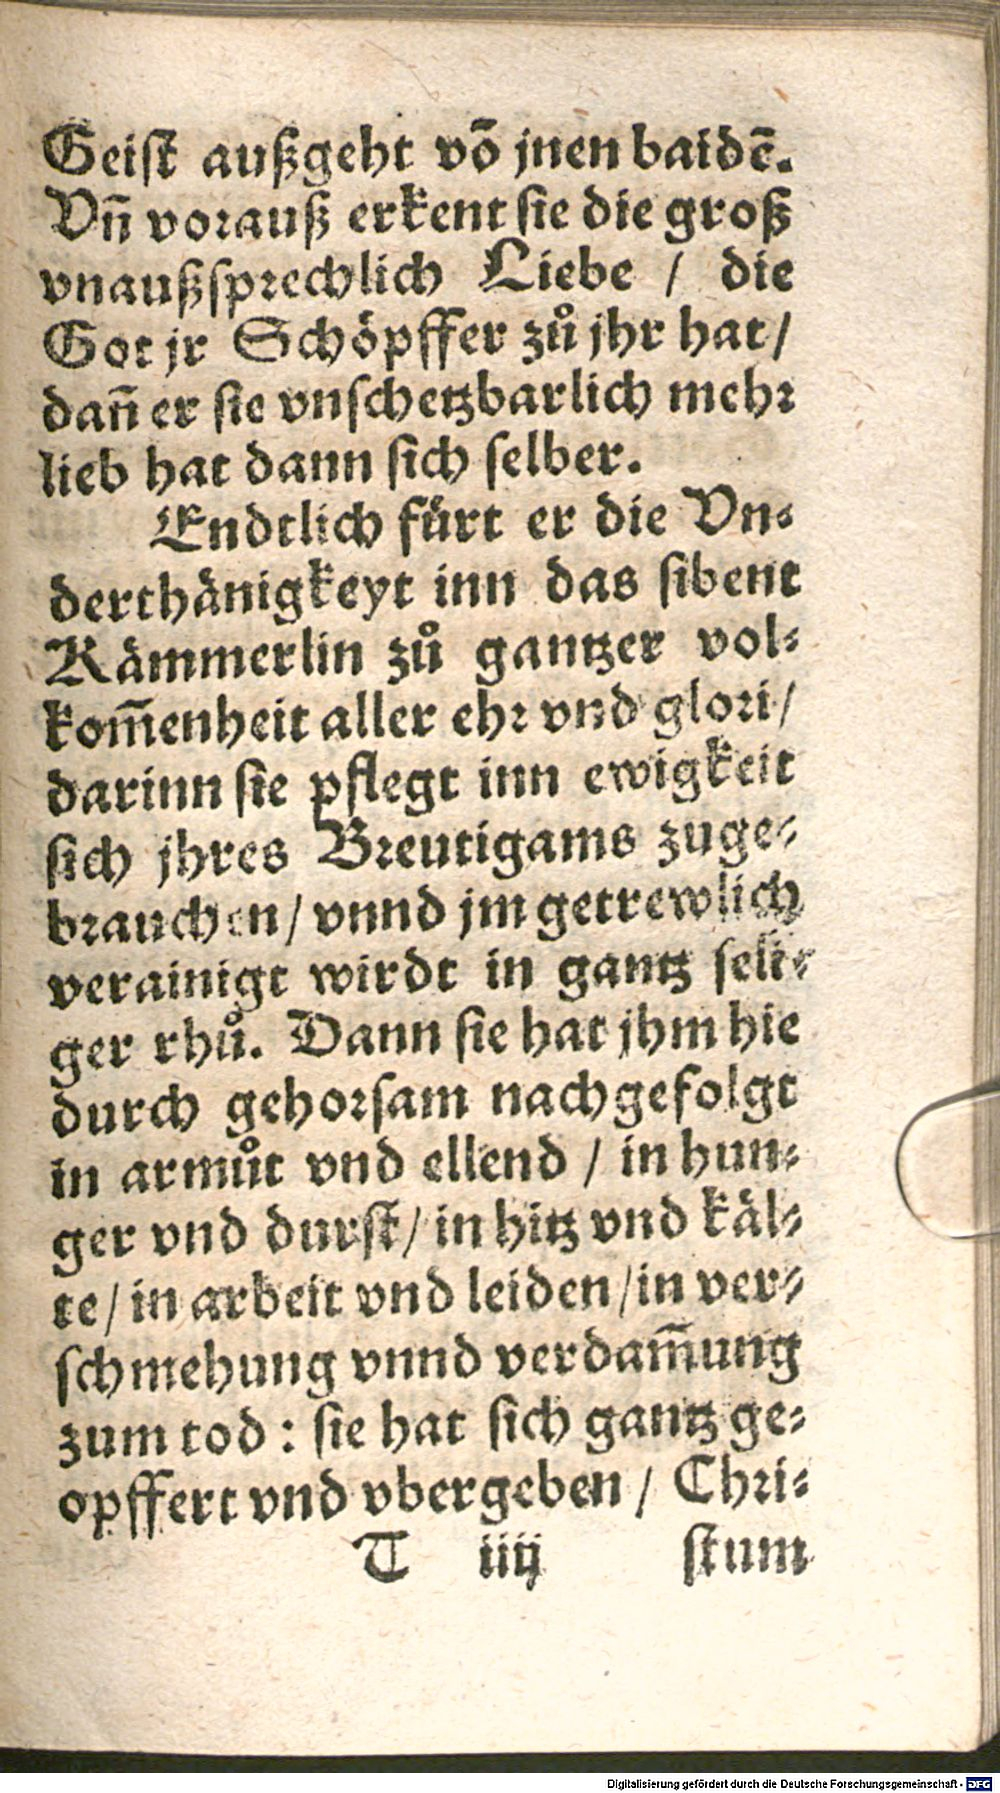 Geiſt außgeht võ jnen baidẽ.
Vñ vorauß erkent ſie die groß
vnaußſprechlich Liebe / die
Got jr Schöpffer zů jhr hat /
dañ er ſie vnſchetzbarlich mehr
lieb hat dann ſich ſelber.
Endtlich fürt er die Vn⸗
derthänigkeyt inn das ſibent
Kämmerlin zů gantzer vol⸗
kom̃enheit aller ehr vnd glori /
darinn ſie pflegt inn ewigkeit
ſich jhres Breutigams zuge⸗
brauchen / vnnd jm getrewlich
verainigt wirdt in gantz ſeli⸗
ger rhů. Dann ſie hat jhm hie
durch gehorſam nachgefolgt
in armůt vnd ellend / in hun⸗
ger vnd durſt / in hitz vnd käl⸗
te / in arbeit vnd leiden / in ver⸗
ſchmehung vnnd verdam̃ung
zum tod : ſie hat ſich gantz ge⸗
opffert vnd vbergeben / Chri⸗
T iiij ſtum
Digitalisierung gefördert durch die Deutsche Forschungsgemeinschaft - DFG